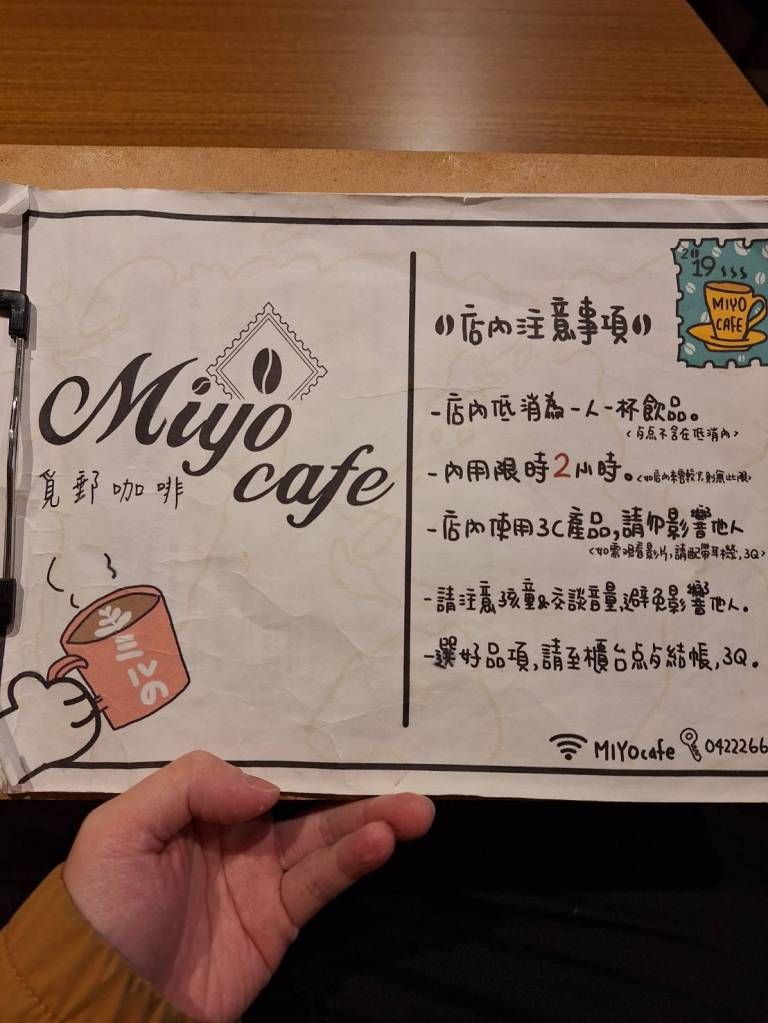 Miyo
cafe
覓郵咖啡
ミヨの
2019
MIYO
CAFE
店內注意事項
-店內低消為一人一杯飲品。
-內用限時2小時。
-店內使用3C產品,請勿影響他人
<如需觀看影片,請配帶耳機,3Q>
-請注意孩童&交談音量,避免影響他人。
-選好品項,請至櫃台点与結帳,3Q。
MIYOcafe 0422266